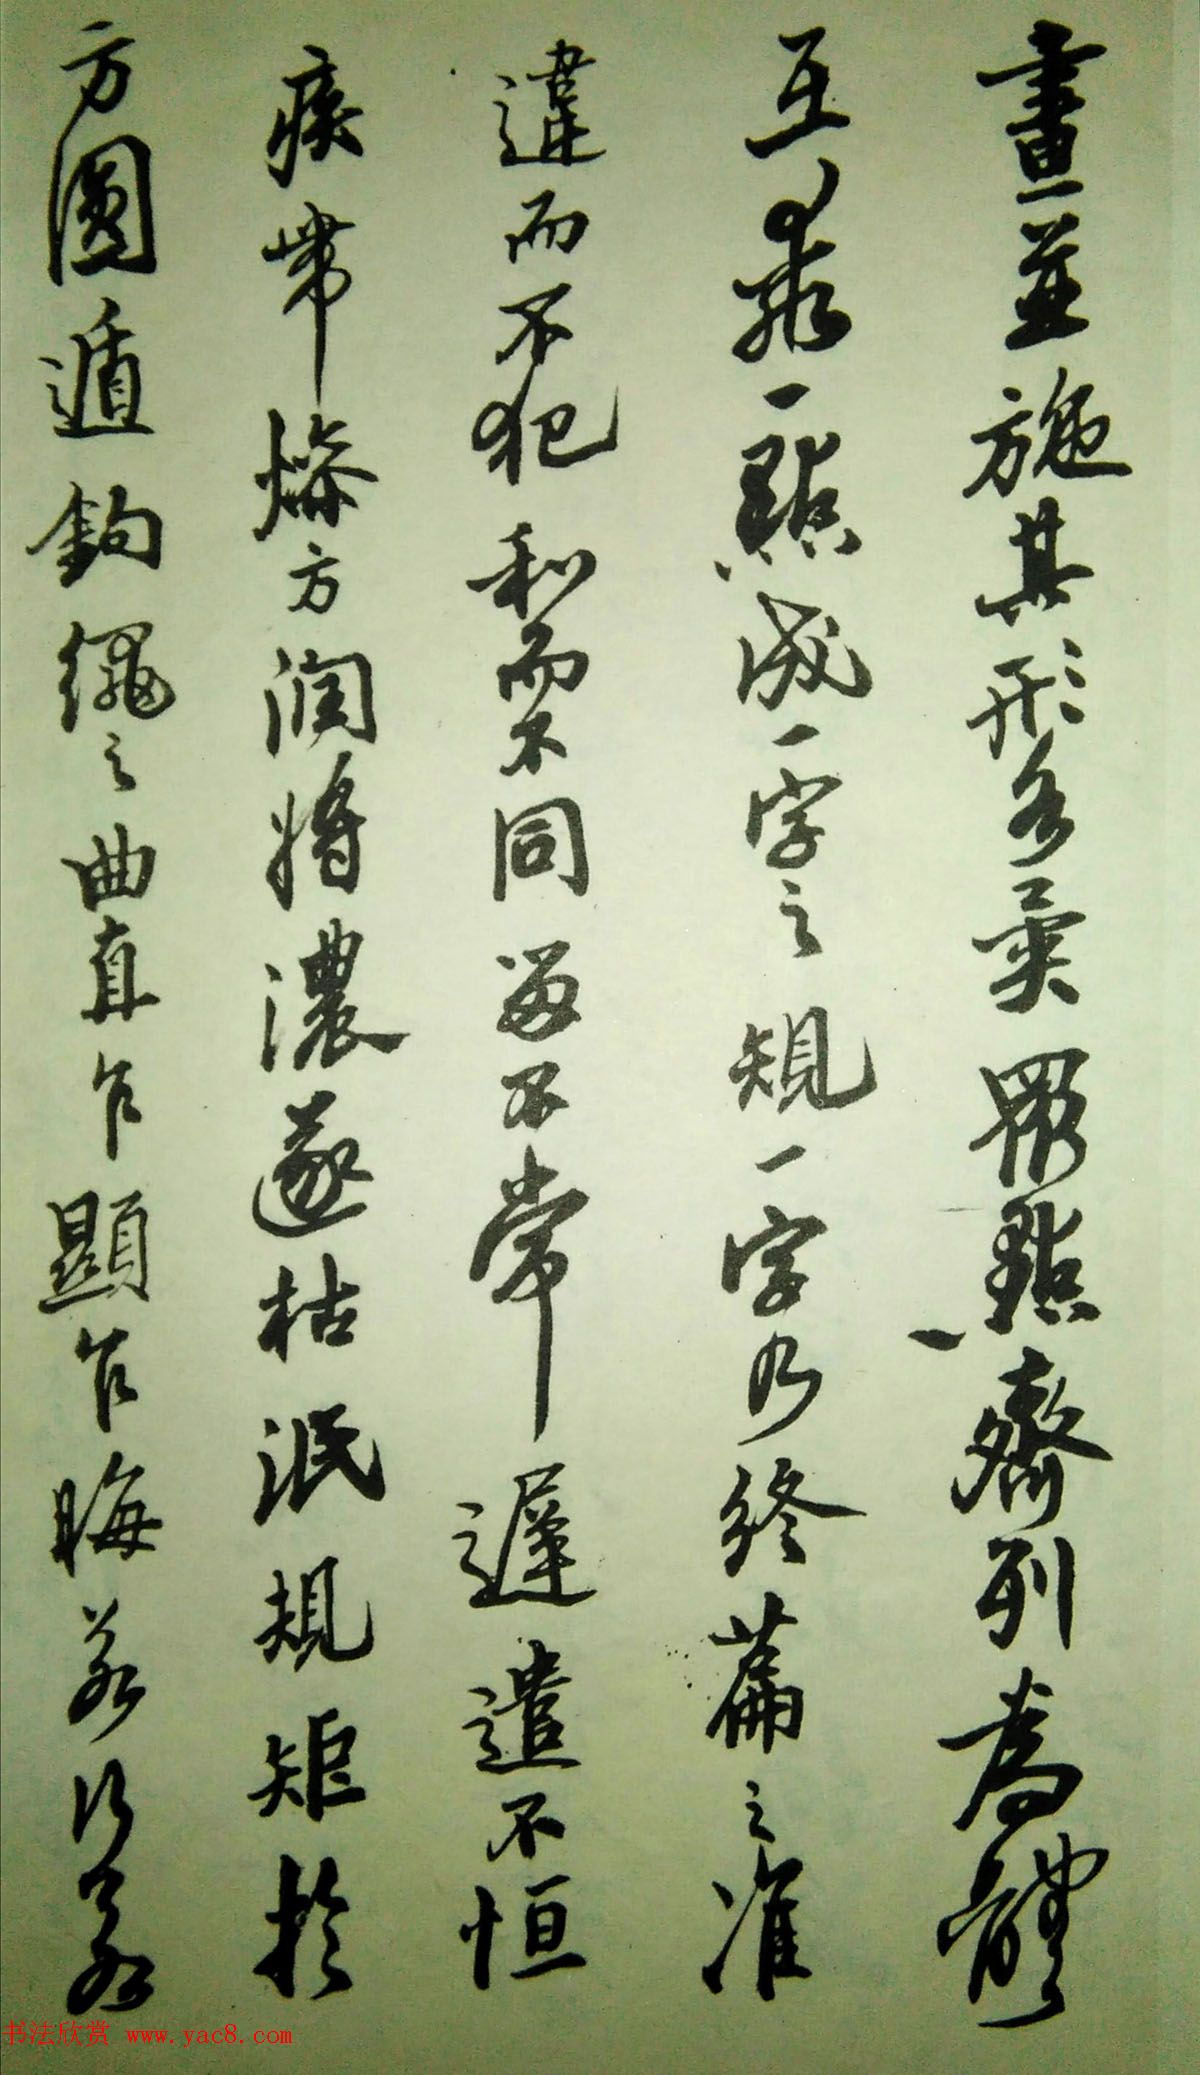 畫並施其形各異眾點齊列為體
互乖一點成一字之規一字乃終篇之准
違而不犯和而不同留不常遲遣不恒
疾帶燥方潤將濃遂枯泯規矩於
方圓遁鈎繩之曲直乍顯乍晦若行若
书法欣赏 www.yac8.com